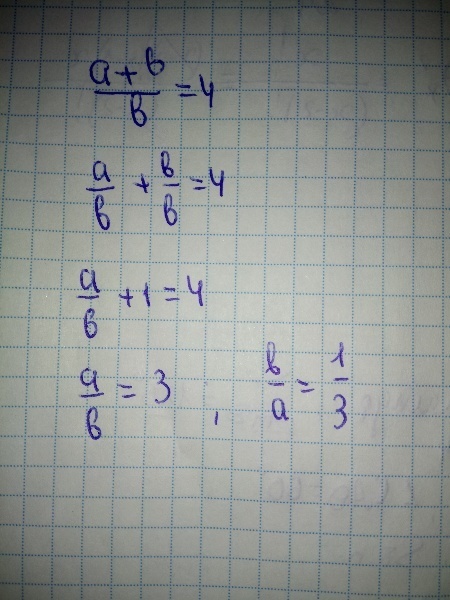 (a+b)/b = 4
a/b + b/b = 4
a/b + 1 = 4
a/b = 3, b/a = 1/3